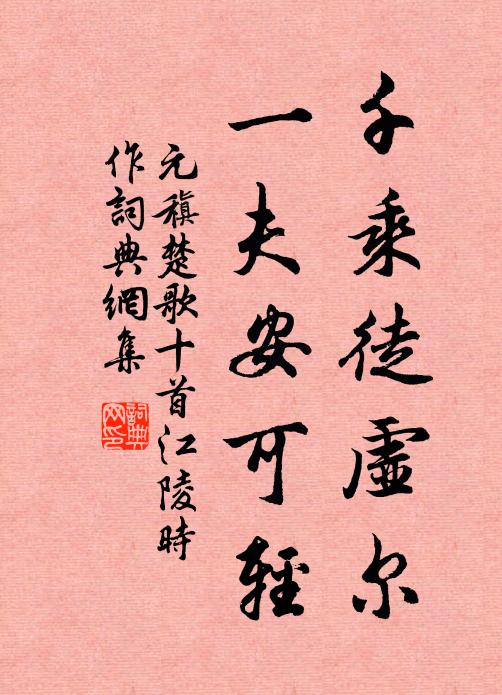 千乘徒虛尔
一夫安可輕
元稹楚歌十首江陵時
作詞典網集
詞典网印